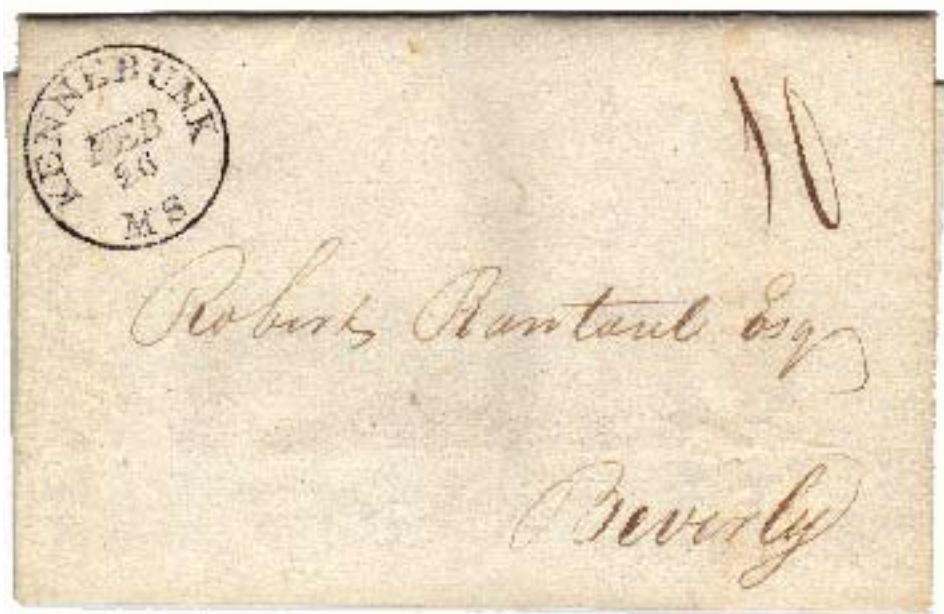 KENNEBUNK
FEB
26
MS
10
Robert Rantoul Esq
Beverly